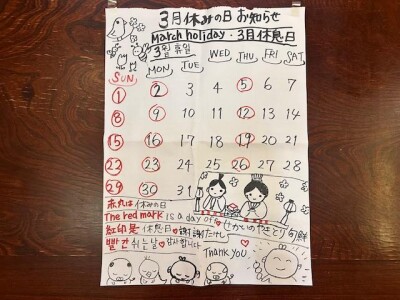 3月休みの日お知らせ
March holiday・3月休息日
3월 휴일
SUN MON TUE WED THU FRI SAT
1 2 3 4 5 6 7
8 9 10 11 12 13 14
15 16 17 18 19 20 21
22 23 24 25 26 27 28
29 30 31
赤丸は休みの日
The red mark is a day off
せかいのやきとり旬鮮
紅印是休息日♥謝謝
빨간 쉬는날♥감사합니다
Thank you